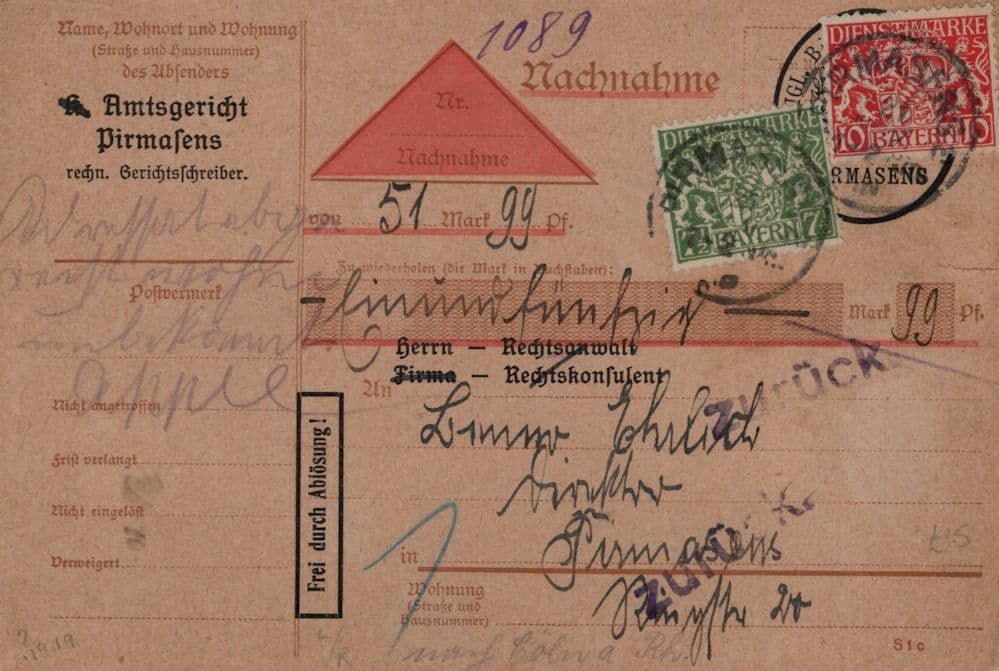 Name, Wohnort und Wohnung
(Straße und Hausnummer)
des Absenders
K. Amtsgericht
Pirmasens
rechn. Gerichtsschreiber.
1089
Nachnahme
Nr.
Nachnahme
DIENSTMARKE
10 BAYERN 10
PIRMASENS
RMASENS
DIENSTMARKE
7½ BAYERN 7½
von 51 Mark 99 Pf.
Zu wiederholen (die Mark in Buchstaben):
Einundfünfzig Mark 99 Pf.
Adressat
unbekannt
Postvermerk
Nicht angetroffen
Frist verlangt
Nicht eingelöst
Verweigert
Frei durch Ablösung!
Herrn – Rechtsanwalt
Firma – Rechtskonsulent
An
Benno Ehrlich
Direktor
in Pirmasens
Wohnung
(Straße und
Hausnummer)
20
Zurück.
Zurück.
nach Cöln a Rh.
S1c